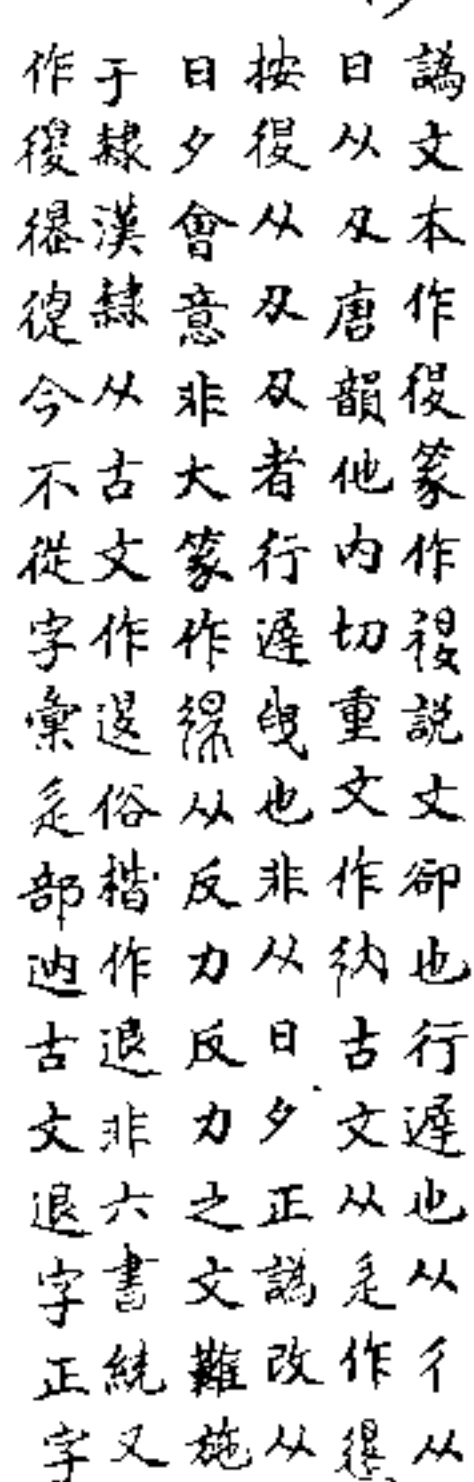 譌文本作㣟篆作𢓴說文卻也行遲也从彳从
日从夊唐韻他內切重文作㣖古文从辵作𢓇
按㣟从夊夊者行遲曳也非从日夕正譌改从
日夕會意非大篆作从反力反力之文難施
于隸漢隸从古文作𨓤俗楷作退非六書統又
作今不從字彙辵部𨒀古文退字正字